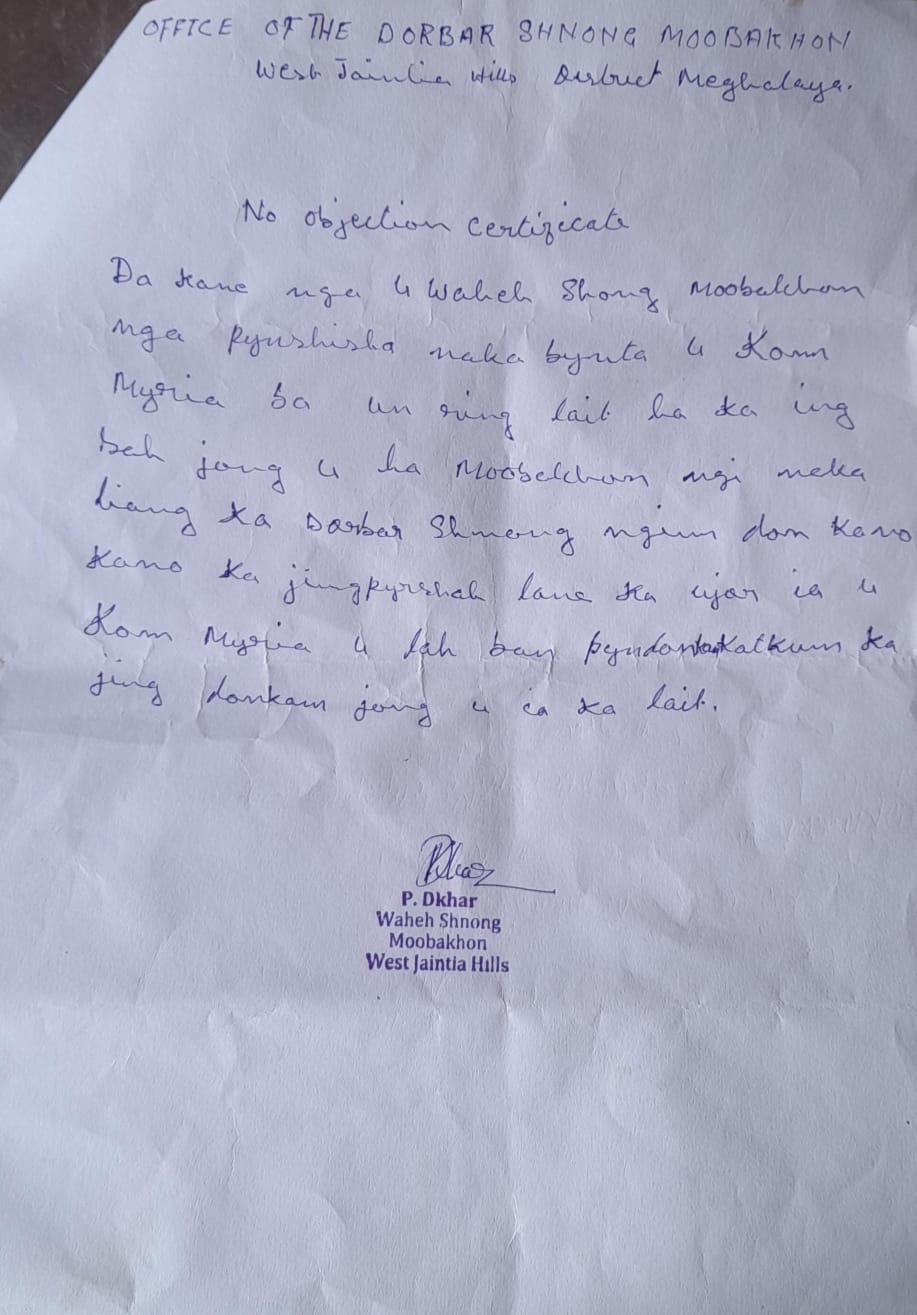 OFFICE OF THE DORBAR SHNONG MOOBAKHON
West Jaintia Hills District Meghalaya.
No objection certificate
Da kane nga u Waheh Shong Moobakhon
nga pynshisha naka bynta u Komn
Myria ba un ring lait ha ka ing
bah jong u ha Moobakhon ngi naka
liang ka Dorbar Shnong ngim don kano
kano ka jingpyrshah lane ka ujor ia u
Kom Myria u lah ban pyndonkam katkum ka
jing donkam jong u ia ka lait.
P. Dkhar
Waheh Shnong
Moobakhon
West Jaintia Hills